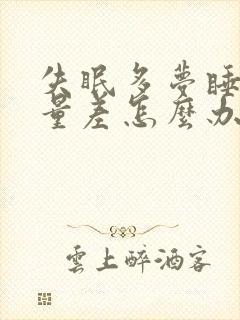 失眠多夢睡
量差怎麼办
雲上醉酒客